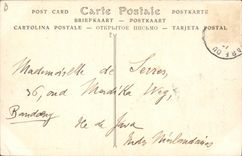 POST CARD Carte Postale POSTKARTE
BRIEFKAART — POSTKARTE
CARTOLINA POSTALE — ОТКРЫТОЕ ПИСЬМО — TARJETA POSTAL
Mademoiselle de Serres,
36, oud Merdika Weg,
Bandoeng
Ile de Java
Indes Néerlandaises